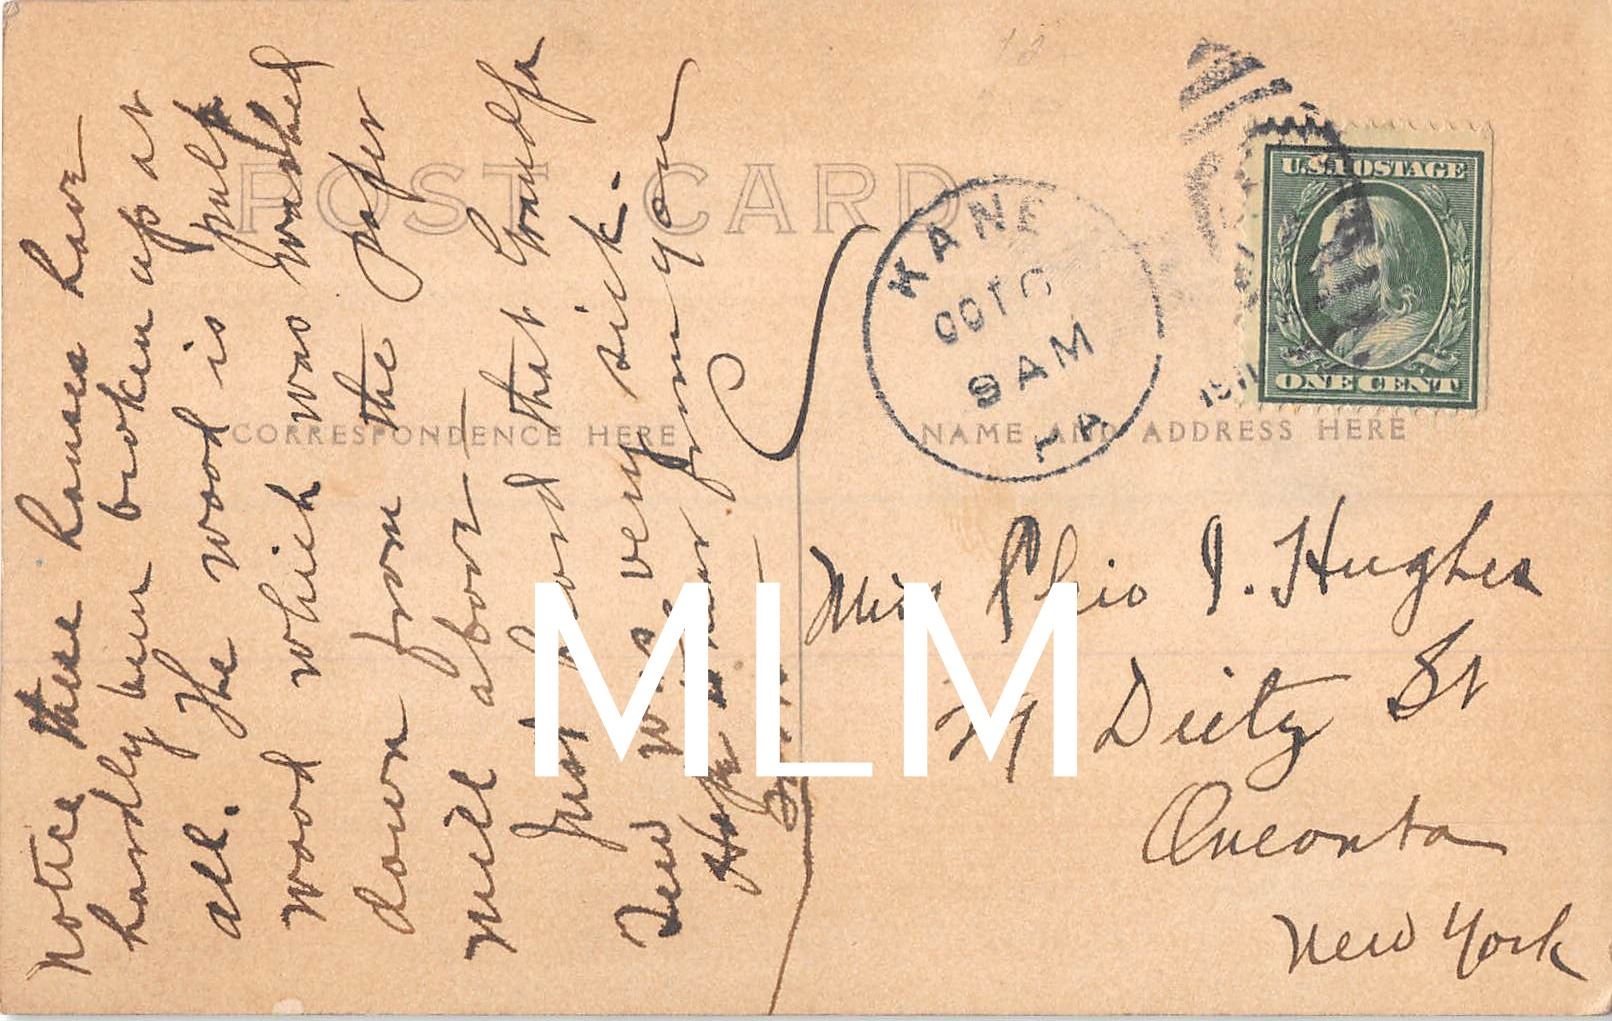 POST CARD
CORRESPONDENCE HERE
NAME AND ADDRESS HERE
U.S. POSTAGE
ONE CENT
KANE
OCT
9 AM
1911
PA
Notice these houses have
hardly been broken up at
all. The wood is pulp
wood which was washed
down from the paper
mill above
Just found that Grandpa
was very sick.
Hope to hear from you
Miss Clio I. Hughes
29 Dietz St
Oneonta
New York
MLM